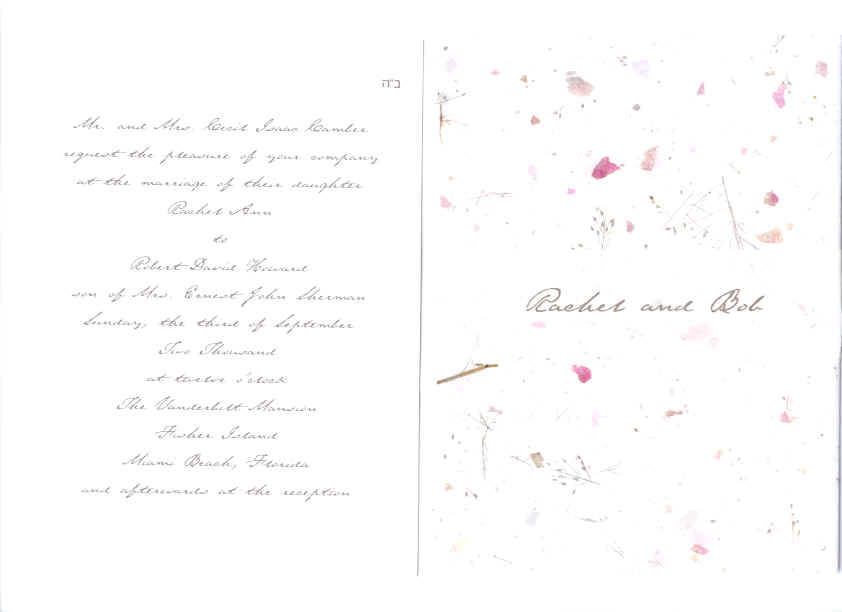 ב"ה
Mr. and Mrs. Cecil Isaac Camber
request the pleasure of your company
at the marriage of their daughter
Rachel Ann
to
Robert David Howard
son of Mrs. Ernest John Sherman
Sunday, the third of September
Two Thousand
at twelve o'clock
The Vanderbilt Mansion
Fisher Island
Miami Beach, Florida
and afterwards at the reception
Rachel and Bob